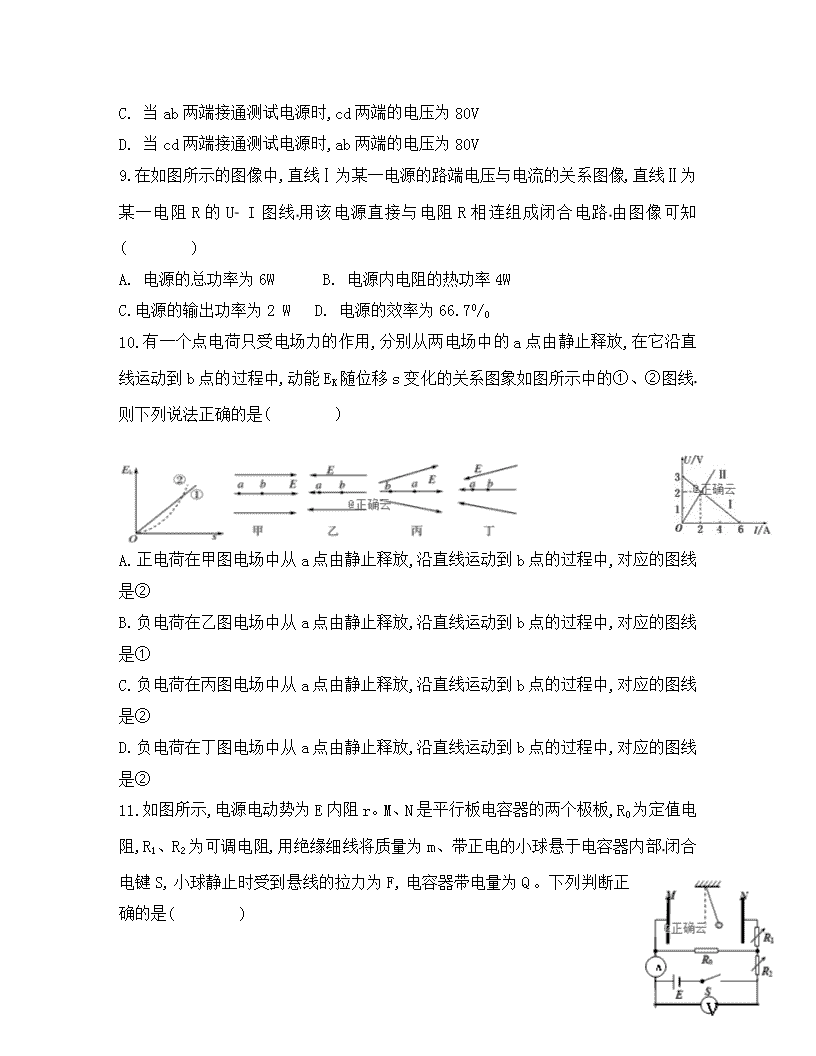 C. 当ab两端接通测试电源时,cd两端的电压为80V
D. 当cd两端接通测试电源时,ab两端的电压为80V
9.在如图所示的图像中,直线Ⅰ为某一电源的路端电压与电流的关系图像,直线Ⅱ为
某一电阻R的U- I图线.用该电源直接与电阻R相连组成闭合电路.由图像可知
(      )
A. 电源的总功率为6W    B. 电源内电阻的热功率4W
C.电源的输出功率为2 W  D. 电源的效率为66.7%
10.有一个点电荷只受电场力的作用,分别从两电场中的a点由静止释放,在它沿直
线运动到b点的过程中,动能EK随位移s变化的关系图象如图所示中的①、②图线.
则下列说法正确的是(      )
Ek ② ① O s
a b E 甲
E a b 乙
b a E 丙
E a b 丁
@正确云
U/V 3 2 1 O 2 4 6 I/A Ⅱ Ⅰ
@正确云
A.正电荷在甲图电场中从a点由静止释放,沿直线运动到b点的过程中,对应的图线
是②
B.负电荷在乙图电场中从a点由静止释放,沿直线运动到b点的过程中,对应的图线
是①
C.负电荷在丙图电场中从a点由静止释放,沿直线运动到b点的过程中,对应的图线
是②
D.负电荷在丁图电场中从a点由静止释放,沿直线运动到b点的过程中,对应的图线
是②
11.如图所示,电源电动势为E内阻r。M、N是平行板电容器的两个极板,R0为定值电
阻,R1、R2为可调电阻,用绝缘细线将质量为m、带正电的小球悬于电容器内部.闭合
电键S,小球静止时受到悬线的拉力为F,电容器带电量为Q。下列判断正
确的是(      )
M N
@正确云
R1
R0
A R2
E S
V